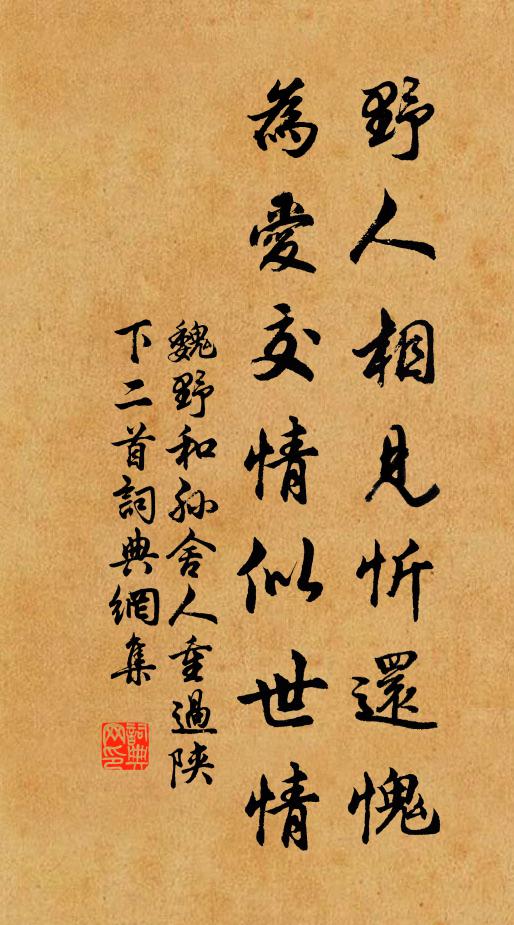 野人相見忻還愧
為愛交情似世情
魏野和孙舍人重過陕
下二首詞典網集
詞典网印